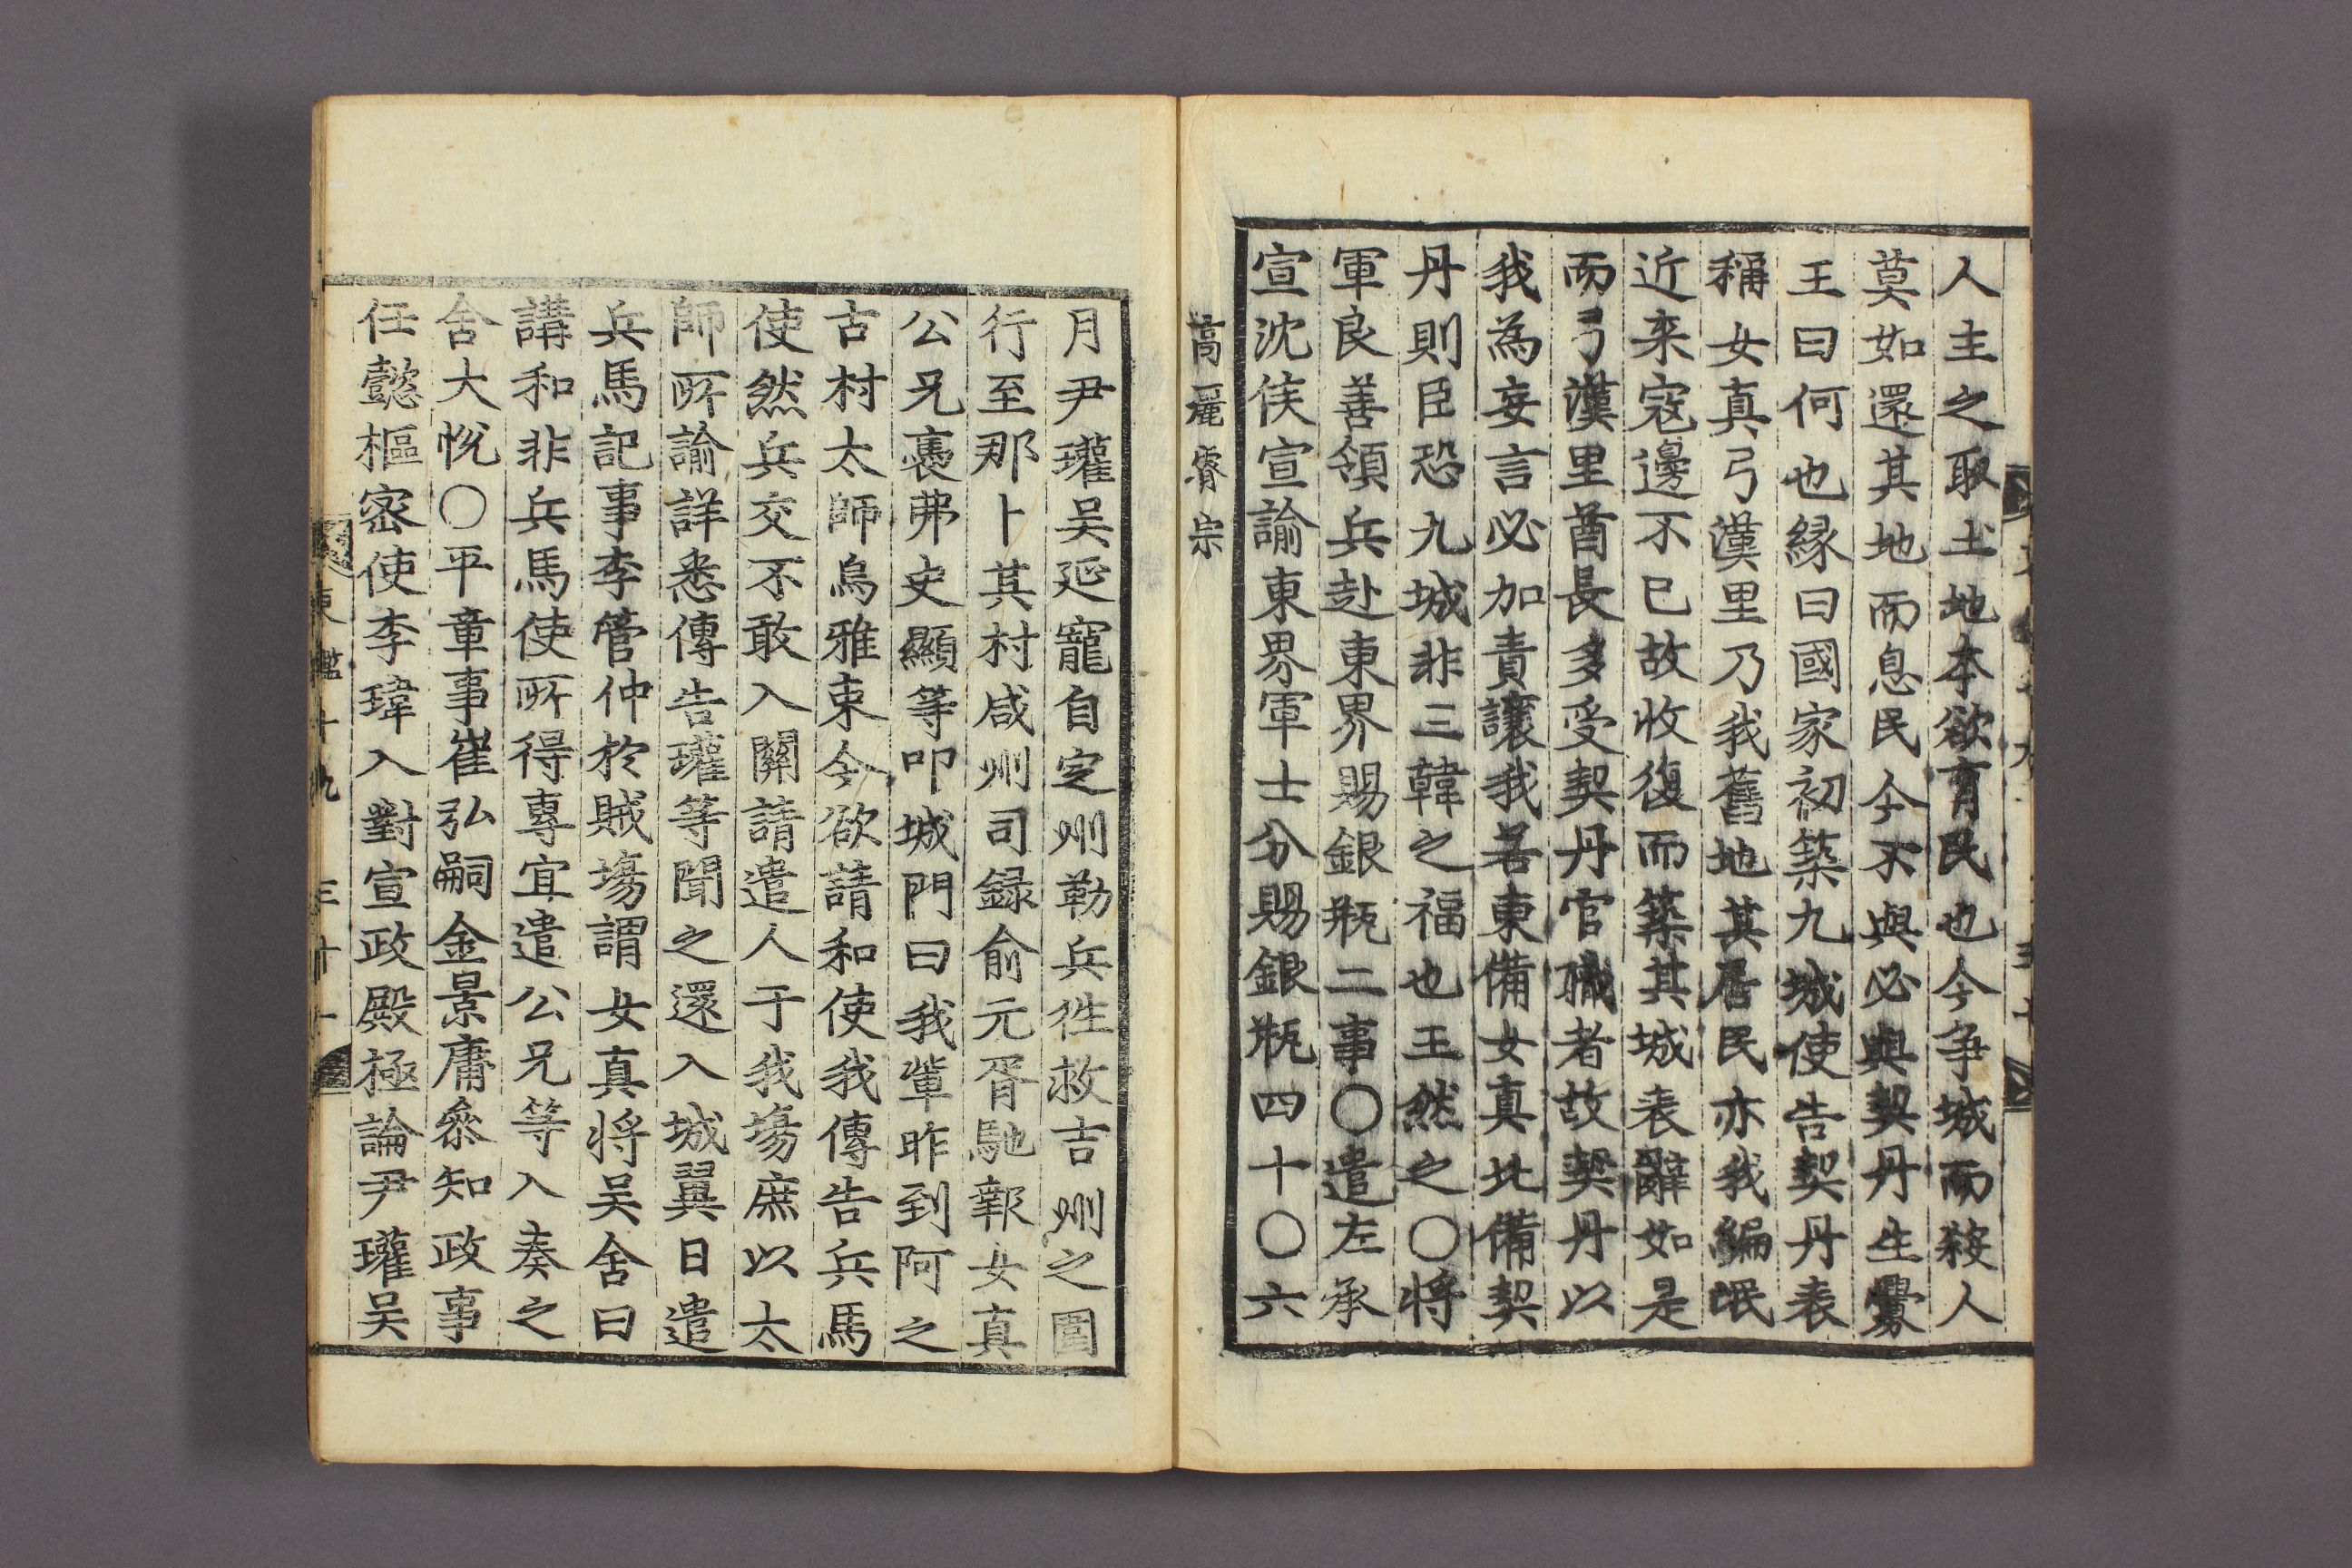 人主之取土地本欲育民也今争城而殺人
莫如還其地而息民今不與必與契丹生釁
王曰何也縁曰國家初築九城使告契丹表
稱女真弓漢里乃我舊地其居民亦我編氓
近来寇邊不已故收復而築其城表辭如是
而弓漢里酋長多受契丹官職者故契丹以
我為妄言必加責讓我若東備女真北備契
丹則臣恐九城非三韓之福也王然之○將
軍良善領兵赴東界賜銀瓶二事○遣左承
宣沈侯宣諭東界軍士分賜銀瓶四十○六
高麗睿宗
月尹瓘吴延寵自定州勒兵徃救吉州之圍
行至那卜其村咸州司録俞元胥馳報女真
公兄褭弗史顯等叩城門曰我軰昨到阿之
古村太師烏雅束今欲請和使我傳告兵馬
使然兵交不敢入關請遣人于我塲庶以太
師所諭詳悉傳告瓘等聞之還入城翼日遣
兵馬記事李管仲於賊塲謂女真将吴舍曰
講和非兵馬使所得專宜遣公兄等入奏之
舍大悅○平章事崔弘嗣金景庸叅知政事
任懿樞密使李瑋入對宣政殿極論尹瓘吴
東鑑十九 三十一